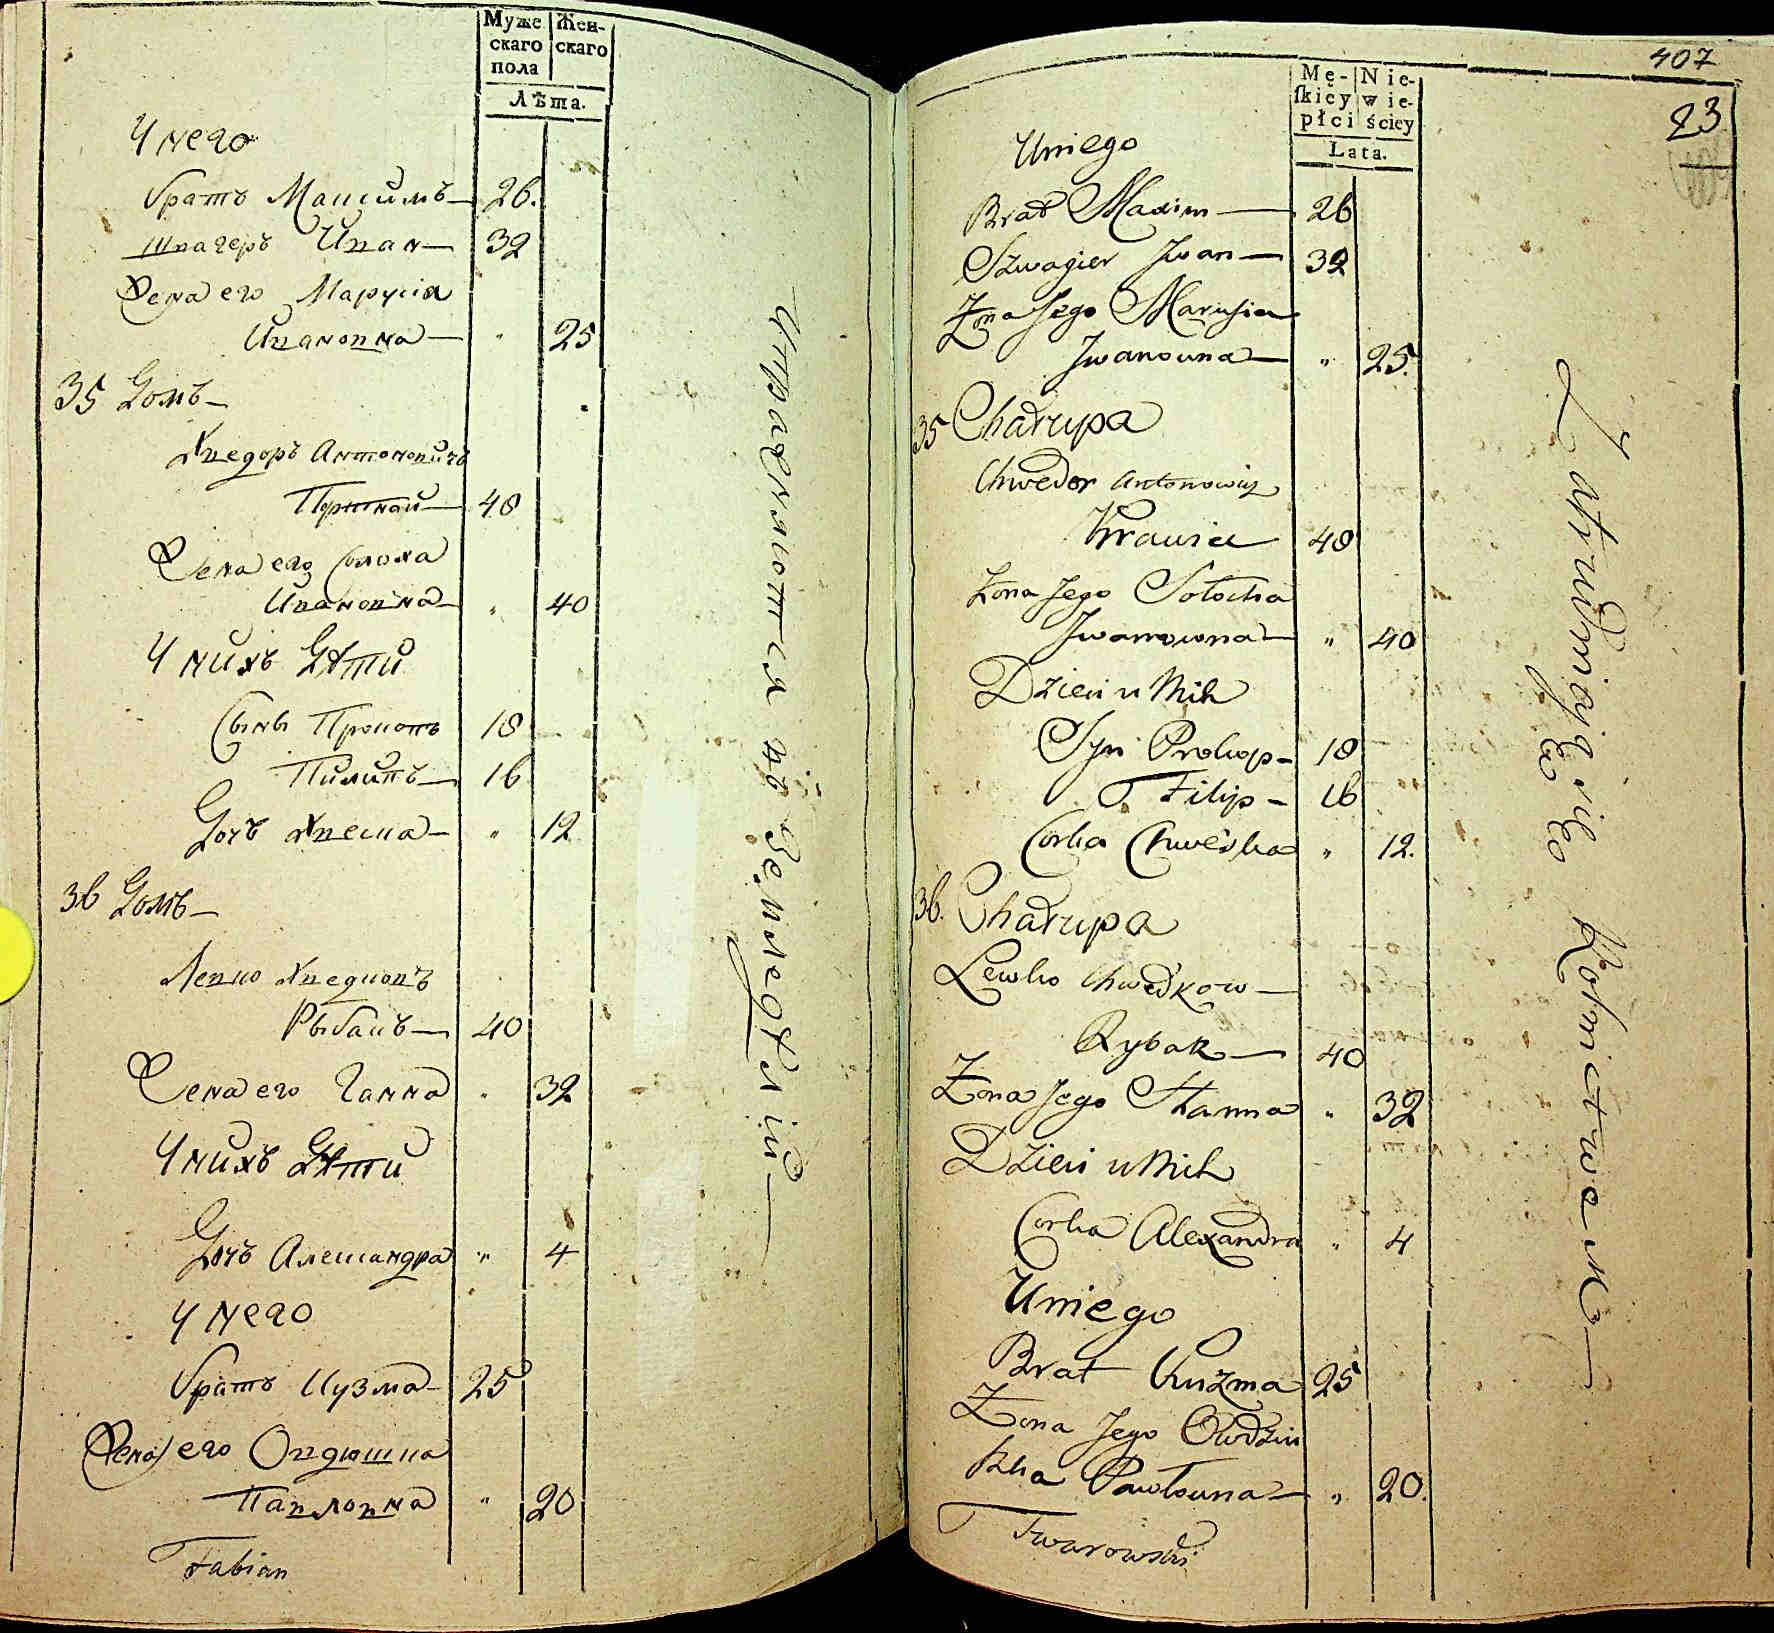 Муже
скаго
пола
Жен-
скаго
Лѣта.
У него
братъ Максимъ 26.
швагеръ Иван 32
Жена его Маруся
Ивановна " 25
35 Домъ
Хведоръ Антоновичъ
Портной 48
Жена его Солоха
Ивановна " 40
У нихъ Дѣти
Сынъ Прокопъ 18
Пилипъ 16
Дочъ Хвеска " 12
36 Домъ
Левко Хведковъ
Рыбакъ 40
Жена его Ганна " 32
У нихъ Дѣти
Дочъ Александра " 4
У него
братъ Кузма 25
Жена его Овдюшка
Павловна " 20
Fabian
Упражняются въ Земледѣлій
407
23
Mę-
skiey
płci
Nie-
wie-
ściey
Lata.
U niego
Brat Maxim 26
Szwagier Jwan 32
Zona Jego Marusia
Jwanowna " 25.
35 Chałupa
Chwedor Antonowicz
Krawiec 48
Zona Jego Sołocha
Jwanowna " 40
Dzieci u Nich
Syn Prokop 18
Filip 16
Corka Chweska " 12.
36. Chałupa
Lewko Chwedkow
Rybak 40
Zona Jego Hanna " 32
Dzieci u Nich
Corka Alexandra " 4
U niego
Brat Kuzma 25
Zona Jego Owdziu
szka Pawłowna " 20.
Twarowski
Zatrudniaią się
Rolnictwem